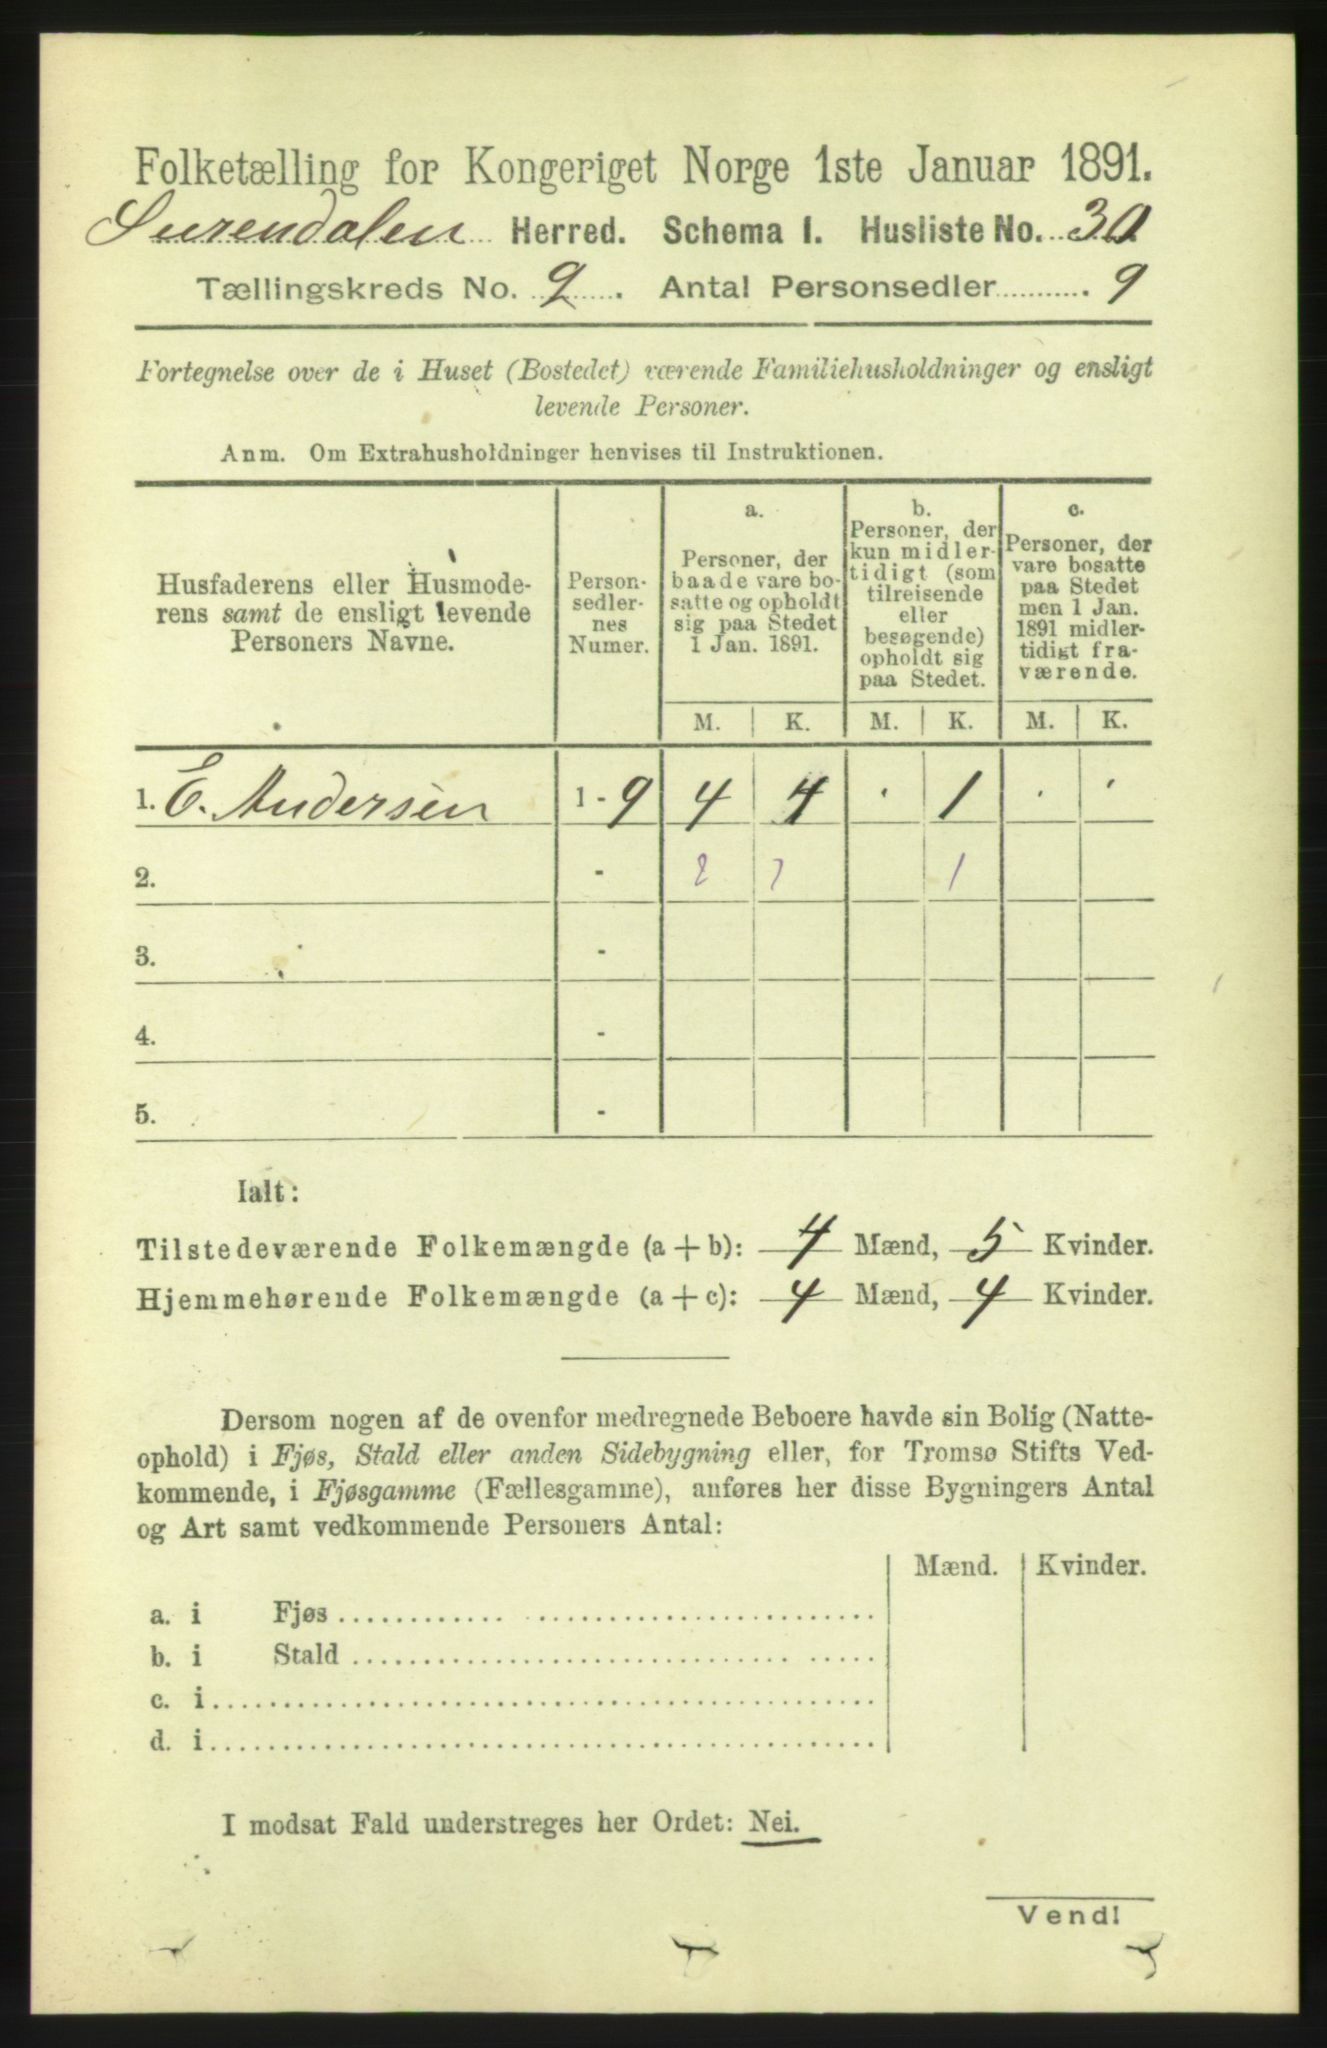 Folketælling for Kongeriget Norge 1ste Januar 1891.
Surendalen Herred. Schema I. Husliste No. 30
Tællingskreds No. 2. Antal Personsedler . 9
Fortegnelse over de i Huset (Bostedet) værende Familiehusholdninger og ensligt
levende Personer.
Anm. Om Extrahusholdninger henvises til Instruktionen.
Husfaderens eller Husmode-
rens samt de ensligt levende
Personers Navne.
Person-
sedler-
nes
Numer.
a.
Personer, der
baade vare bo-
satte og opholdt
sig paa Stedet
1 Jan. 1891.
b.
Personer, der
kun midler-
tidigt (som
tilreisende
eller
besøgende)
opholdt sig
paa Stedet.
c.
Personer, der
vare bosatte
paa Stedet
men 1 Jan.
1891 midler-
tidigt fra-
værende.
M. K. M. K. M. K.
1. E. Andersen 1 - 9 4 4 · 1 · ·
2. - 1
3. -
4. -
5. -
Ialt:
Tilstedeværende Folkemængde (a + b): 4 Mænd, 5 Kvinder.
Hjemmehørende Folkemængde (a + c): 4 Mænd, 4 Kvinder.
Dersom nogen af de ovenfor medregnede Beboere havde sin Bolig (Natte-
ophold) i Fjøs, Stald eller anden Sidebygning eller, for Tromsø Stifts Ved-
kommende, i Fjøsgamme (Fællesgamme), anføres her disse Bygningers Antal
og Art samt vedkommende Personers Antal:
Mænd. Kvinder.
a. i Fjøs
b. i Stald
c. i
d. i
I modsat Fald understreges her Ordet: Nei.
Vend!